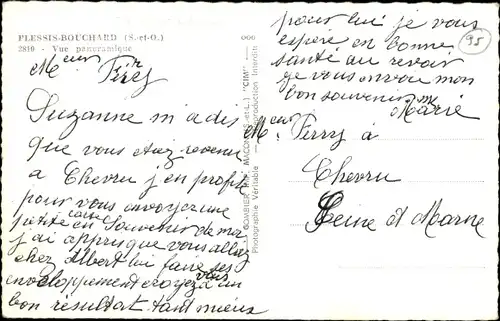 PLESSIS-BOUCHARD (S.-et-O.)
2810 - Vue panoramique
000
95
Meur
Suzanne m'a dit
que vous étiez revenu
a Chevru j'en profite
pour vous envoyez une
petite carte en Souvenir de moi
j'ai appris que vous allez
chez Albert lui faire ses
enveloppement croyez vous a un
bon résultat tant mieux
pour lui je vous
espère en bonne
santé au revoir
je vous envoie mon
bon souvenir
Marie
COMBIER IMP. MACON (S.-et-L.) "CIM"
Photographie Véritable - Reproduction Interdite
Meur Perry à
Chevru
Seine et Marne